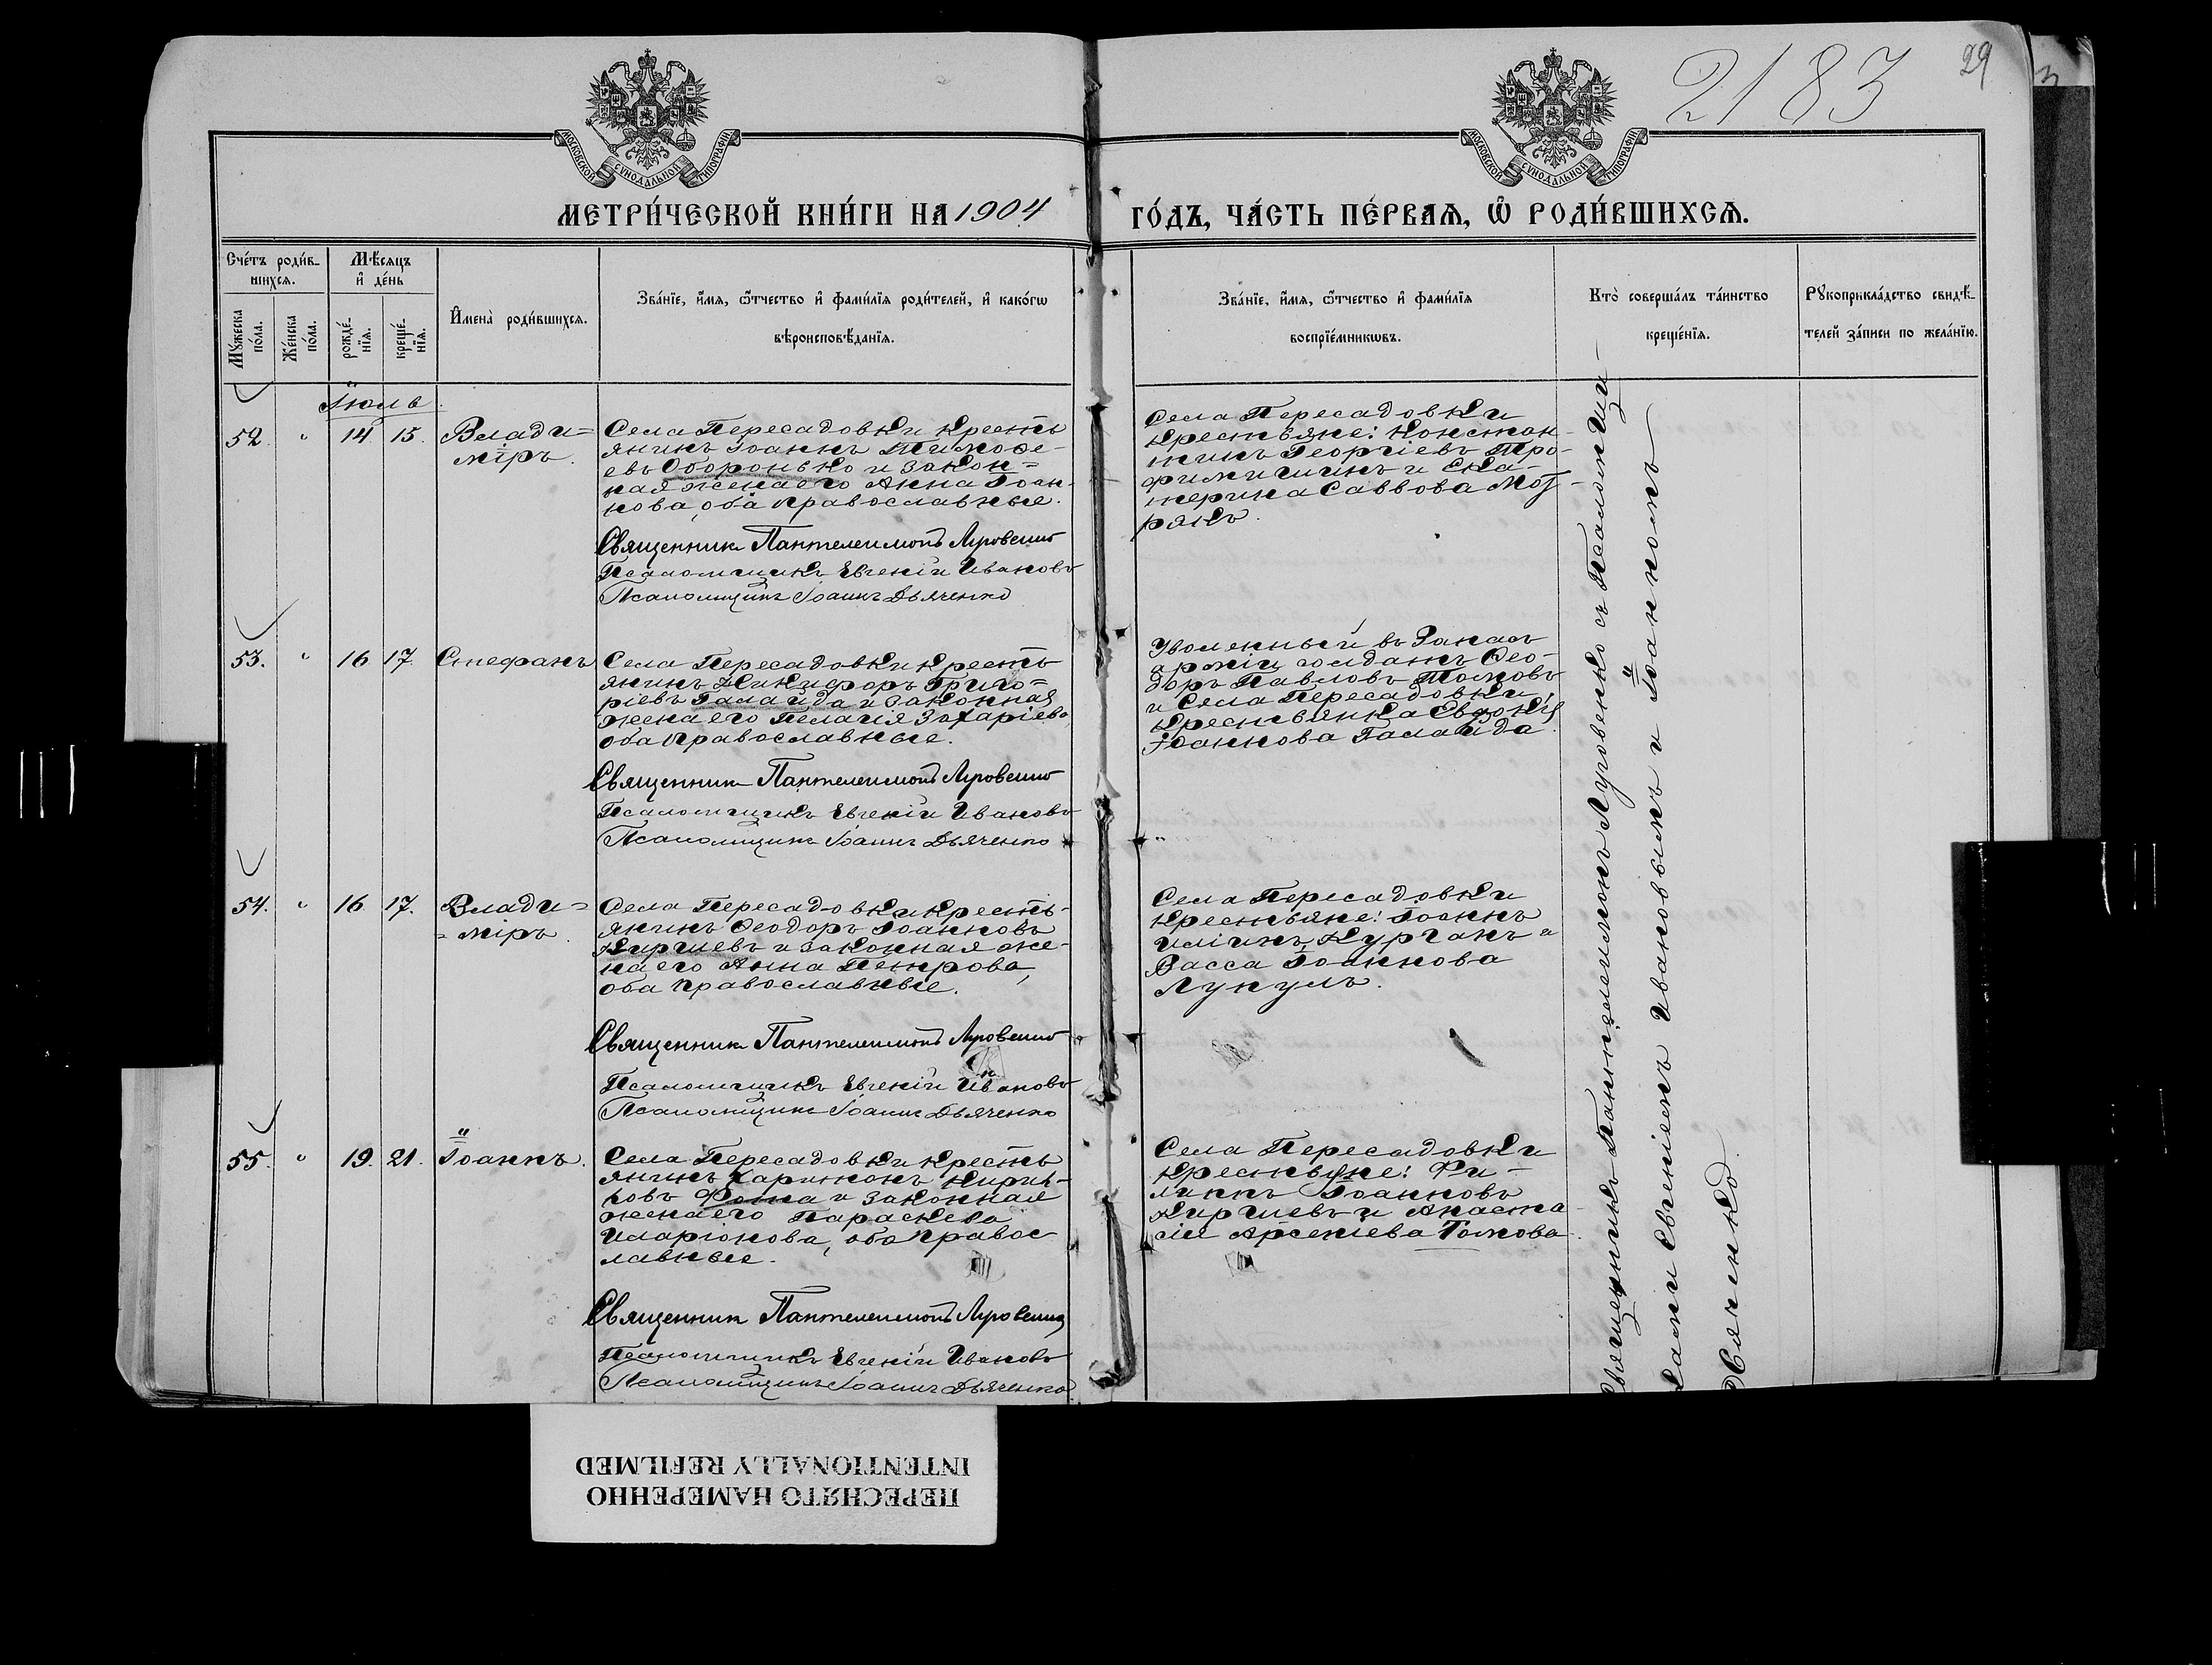 2183
29
МОСКОВСКОЙ СѴНОДАЛЬНОЙ ТИПОГРАФІИ
МОСКОВСКОЙ СѴНОДАЛЬНОЙ ТИПОГРАФІИ
МЕТРИ́ЧЕСКОЙ КНИ́ГИ НА 1904 ГО́ДЪ, ЧА́СТЬ ПЕ́РВАѦ, Ѿ РОДИ́ВШИХСѦ.
Сче́тъ роди́в-
шихсѧ.
Мѣ́сѧцъ
и҆ де́нь
Мꙋ́жеска
по́ла.
Же́нска
по́ла.
рожде́-
нїѧ.
креще́-
нїѧ.
И҆мена̀ роди́вшихсѧ.
Зва́нїе, и҆́мѧ, ѻ҆́тчество и҆ фамѝлїѧ роди́телей, и҆ како́гѡ
вѣроисповѣ́данїѧ.
Зва́нїе, и҆́мѧ, ѻ҆́тчество и҆ фамѝлїѧ
воспрїе́мникѡвъ.
Кто̀ соверша́лъ та́инство
креще́нїѧ.
Рꙋкоприкла́дство свидѣ́-
телей за́писи по жела́нїю.
Іюль
52. " 14 15. Влади=
міръ.
Села Пересадовки кресть
янинъ Іоаннъ Тимофе-
евъ Оборонько и закон=
ная жена его Анна Іоан-
нова, оба православные.
Священник Пантелеимонъ Луговенко
Псаломщикъ Евгеній Ивановъ
Псаломщикъ Іоаннъ Дьяченко
Села Пересадовки
крестьяне: Констан-
тинъ Георгіевъ Тро-
фимишинъ и Ека-
терина Саввова Мот-
рянъ.
53. " 16 17. Стефанъ
Села Пересадовки кресть
янинъ Никифоръ Григо=
ріевъ Галайда и законная
жена его Пелагія Захаріева
оба православные.
Священник Пантелеимонъ Луговенко
Псаломщикъ Евгеній Ивановъ
Псаломщикъ Іоаннъ Дьяченко
Уволенный въ Запасъ
арміи солдатъ Ѳео-
доръ Павловъ Томовъ
и Села Пересадовки,
крестьянка Евдокія
Іоаннова Галайда.
54. " 16 17. Влади=
=міръ.
Села Пересадовки кресть-
янинъ Ѳеодоръ Іоанновъ
Киргиевъ и законная же-
на его Анна Петрова,
оба православные.
Священник Пантелеимонъ Луговенко
Псаломщикъ Евгеній Ивановъ
Псаломщикъ Іоаннъ Дьяченко
Села Пересадовки
крестьяне: Іоаннъ
Иліинъ Курганъ и
Васса Іоаннова
Лупулъ.
55. " 19. 21. Іоаннъ.
Села Пересадовки кресть
янинъ Харитонъ Кирил-
ловъ Фота и законная
жена его Параскева
Иларіонова, оба правос-
лавные.
Священник Пантелеимонъ Луговенко
Псаломщикъ Евгеній Ивановъ
Псаломщикъ Іоаннъ Дьяченко
Села Пересадовки
крестьяне: Фи-
липпъ Іоанновъ
Киргиевъ и Анаста-
сія Арсеніева Томова.
Священникъ Пантелеимонъ Луговенко съ Псаломщи-
ками Евгеніемъ Ивановымъ и Іоанномъ
Дьяченко.
ПЕРЕСНЯТО НАМЕРЕННО
INTENTIONALLY REFILMED